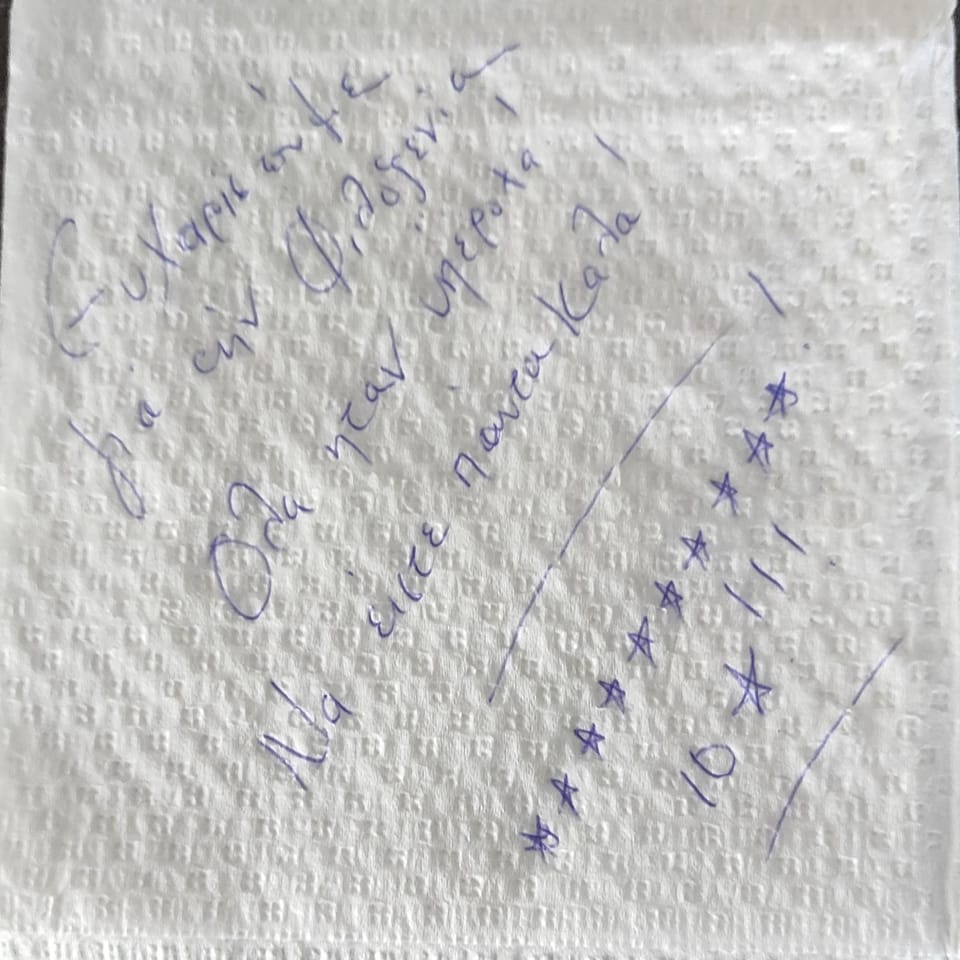 Ευχαριστούμε
για την φιλοξενία
Όλα ήταν υπέροχα!
Να είστε πάντα καλά!
★★★★★★★★★★!
10★!!!